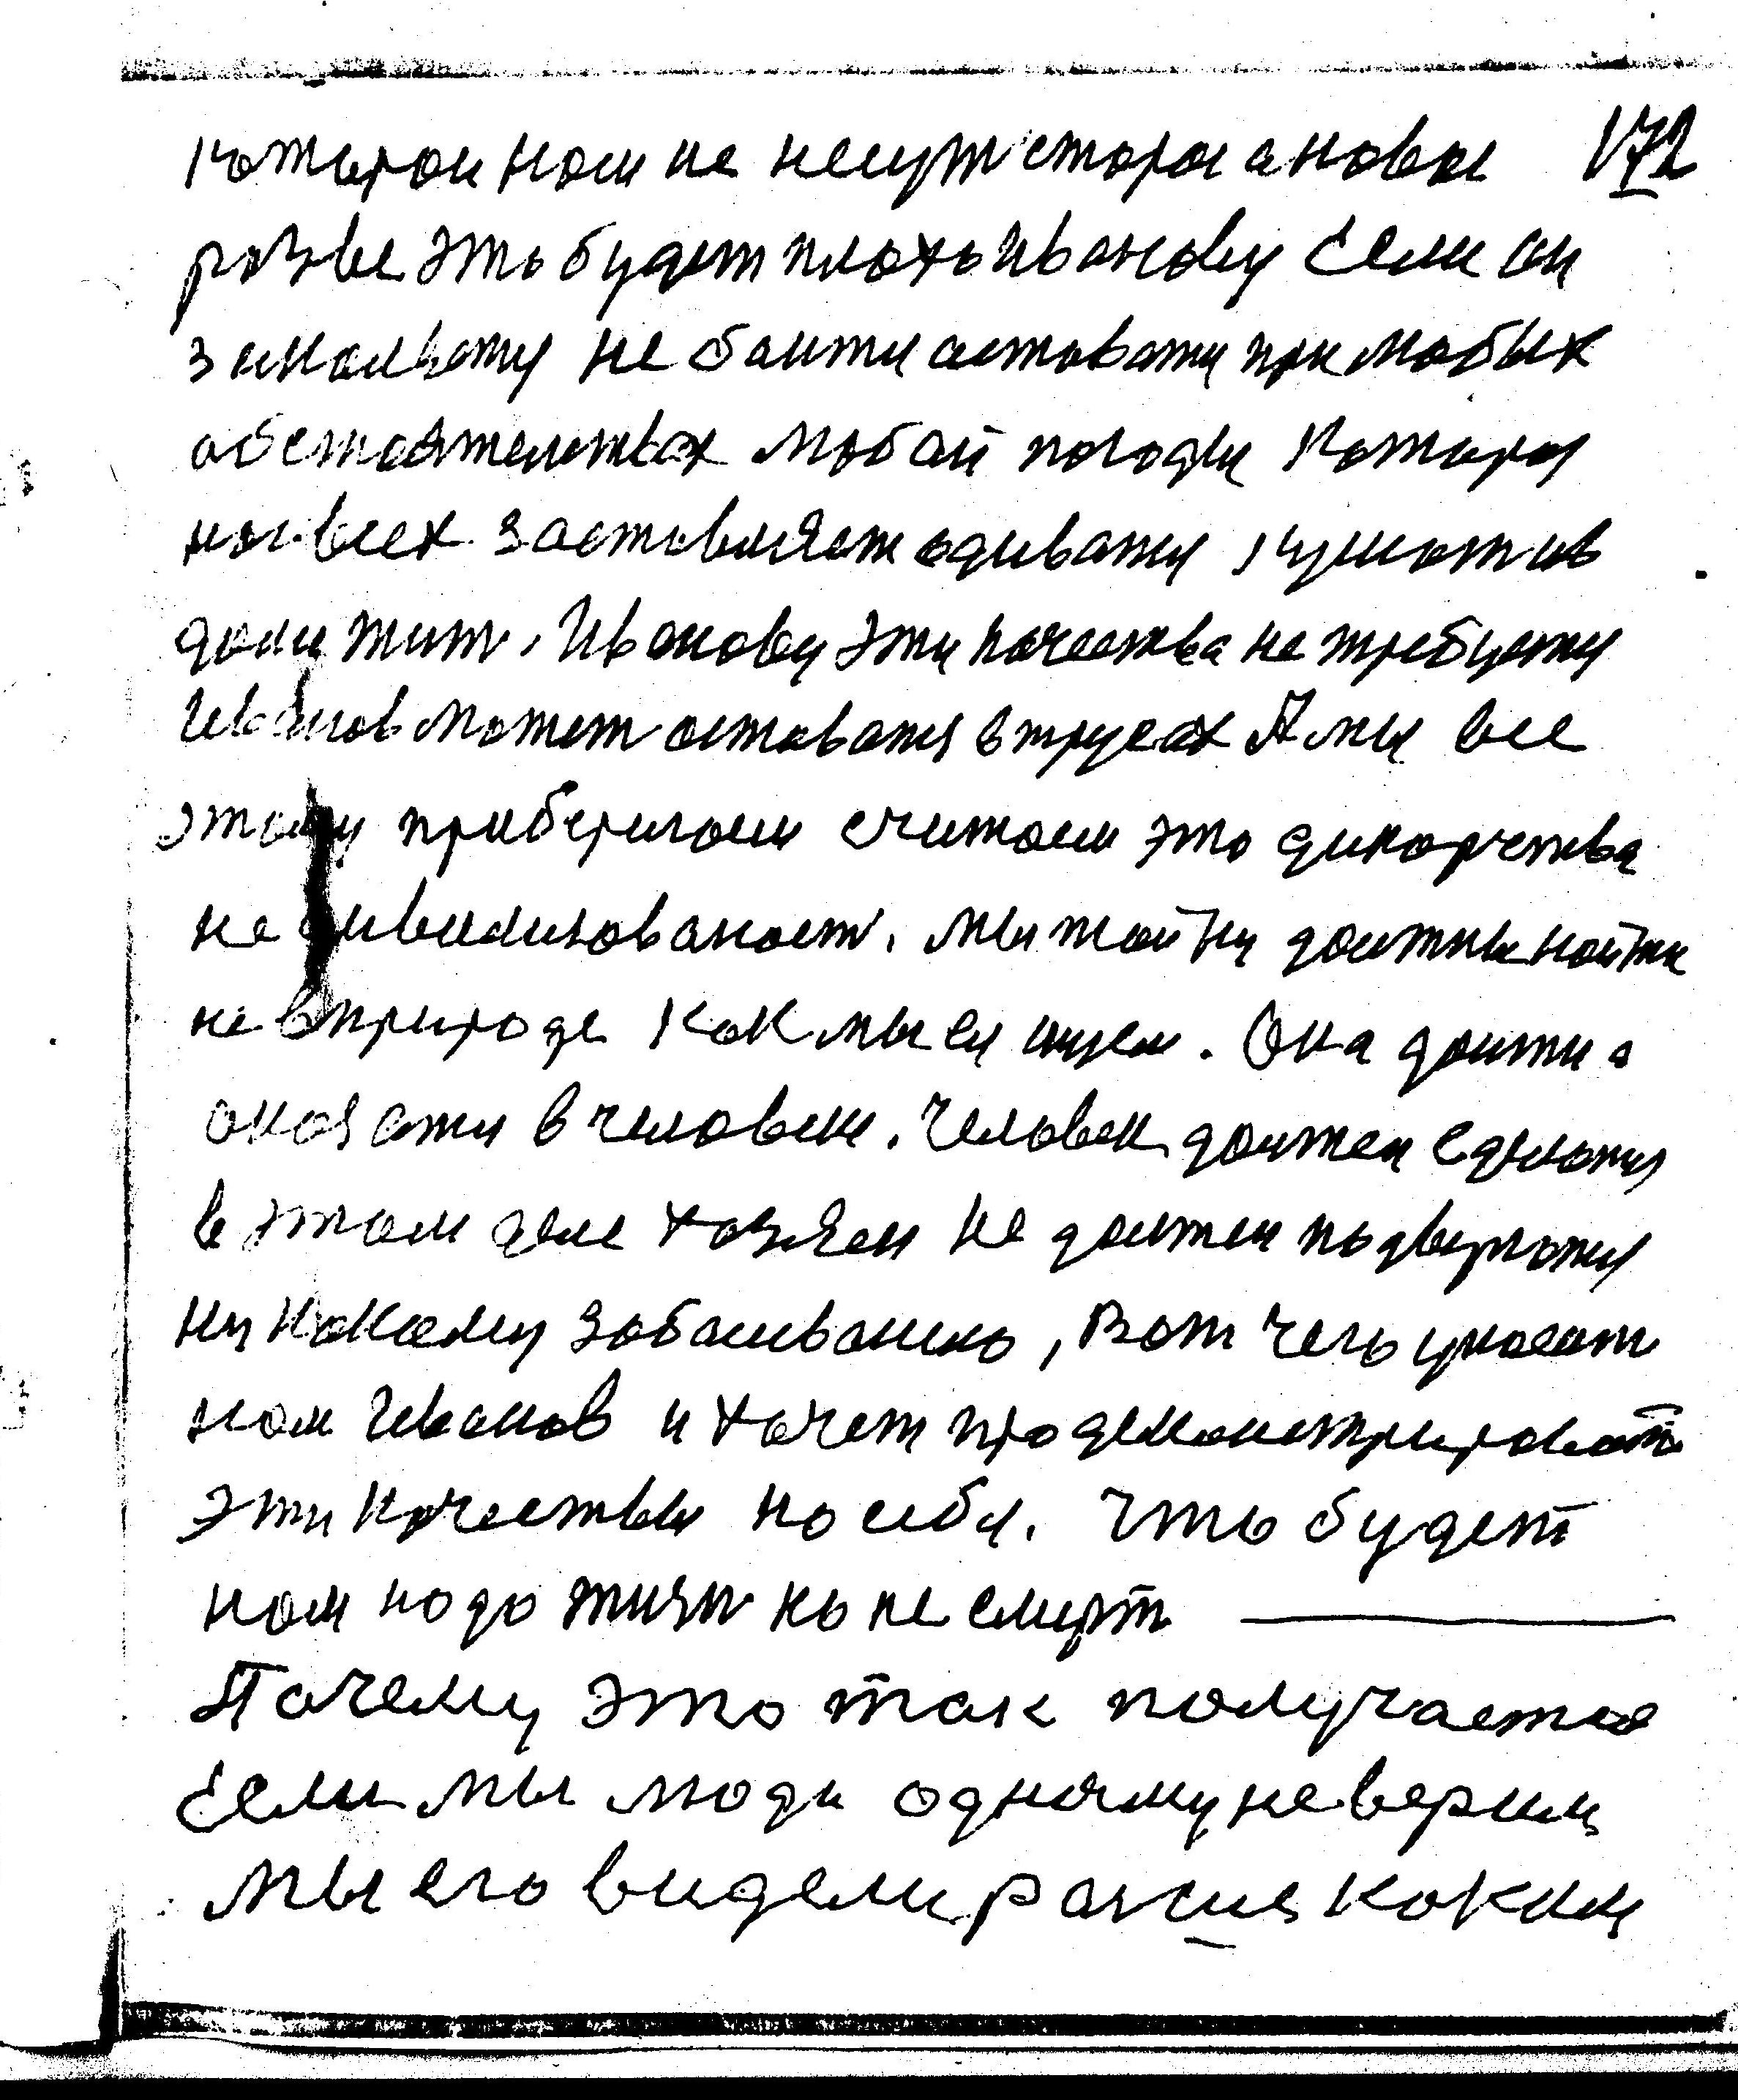 которои нам не несут стороя а новое 172
разве это будет плохо Иванову Если он
закольоту не боитц астоватц при любых
обстоятельствах любай погоды Которы
нас всех заставляет одиватц кушат ив
доми жит. Иванову эти качества не требуетц
Иванов может остоватся в трусах А мы все
этому прибегигаем считаем это дикарчства
не цивилизованост. Мы тайну должны найти
не в природе Как мы ец ищем. Она должна
оказатц в человеке. Человек должен сделатц
в этом деле хозяен не должен подвергатц
ни Какаму заболиванию, Вот чего укоет
нам Иванов и хочет продемонстрироват
эти Качествы на себе. Что будет
нам надо жизн но не смерт
Почему это так получается
Если мы люди одному не верим
мы его видели раньше каким